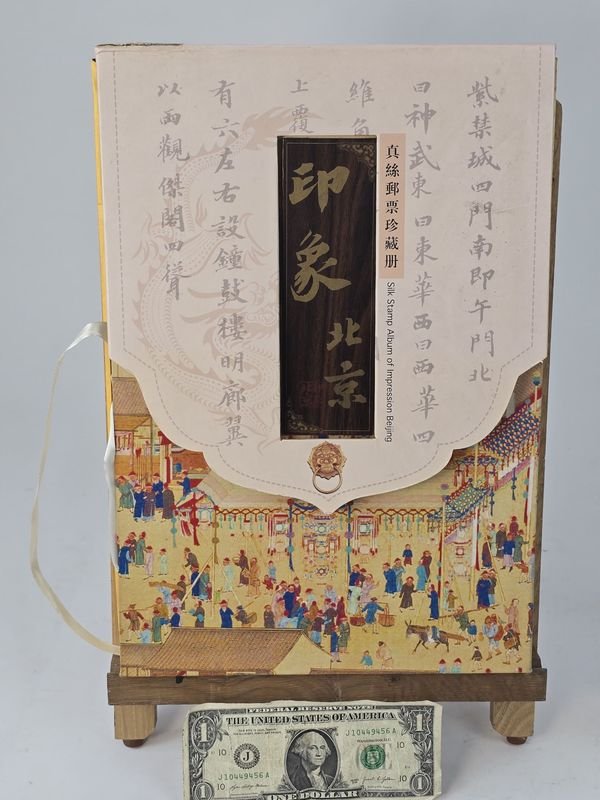 紫禁城四門南即午門北
曰神武東曰東華西曰西華四
維角
上覆
有六左右設鐘鼓樓明廊翼
以兩觀傑閣四聳
真絲郵票珍藏册
Silk Stamp Album of Impression Beijing
印象
北京
FEDERAL RESERVE NOTE
THE UNITED STATES OF AMERICA
1
1
J 10449456 A
10
10
J
J 10449456 A
10
10
ONE DOLLAR